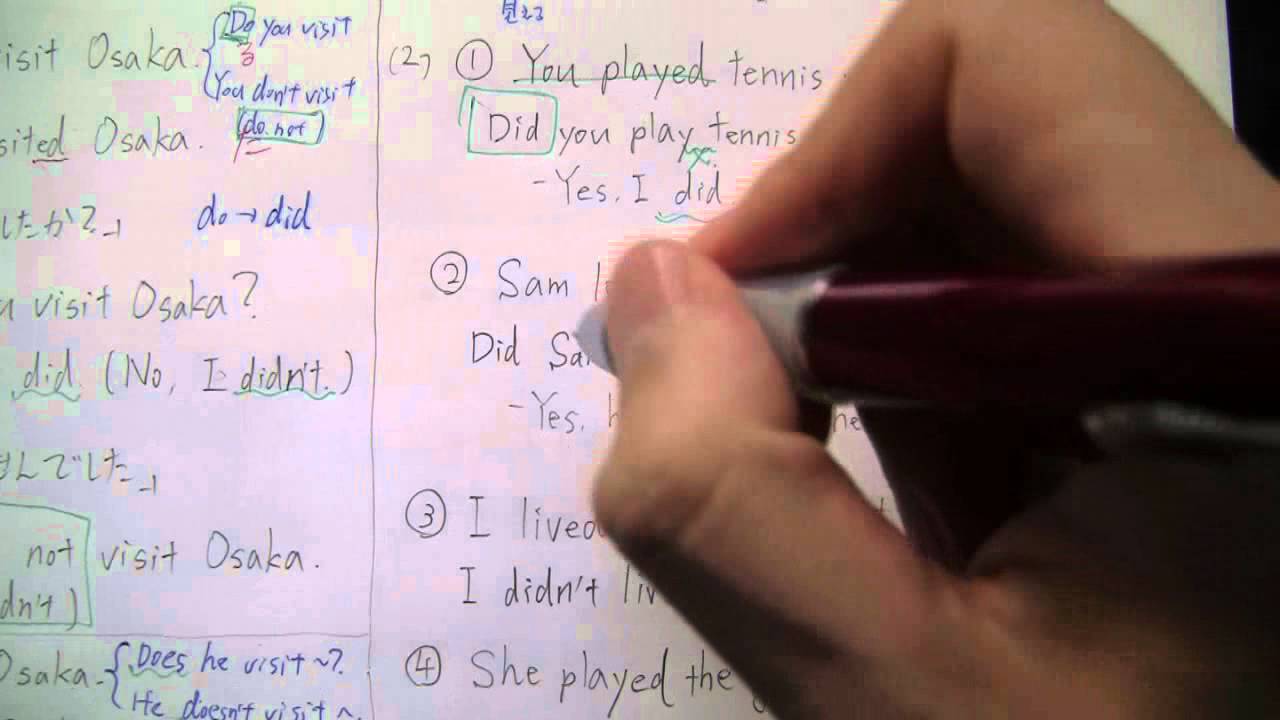 isit Osaka.
Do you visit
る
You don't visit
(do not)
sited Osaka.
したか?」
do→did
u visit Osaka?
did (No, I didn't.)
せんでした」
not visit Osaka.
dn't)
Osaka.
Does he visit ~?
He doesn't visit ~.
(2) ① You played tennis
Did you play tennis
-Yes, I did
② Sam
Did
-Yes,
he
③ I lived
I didn't
④ She played the